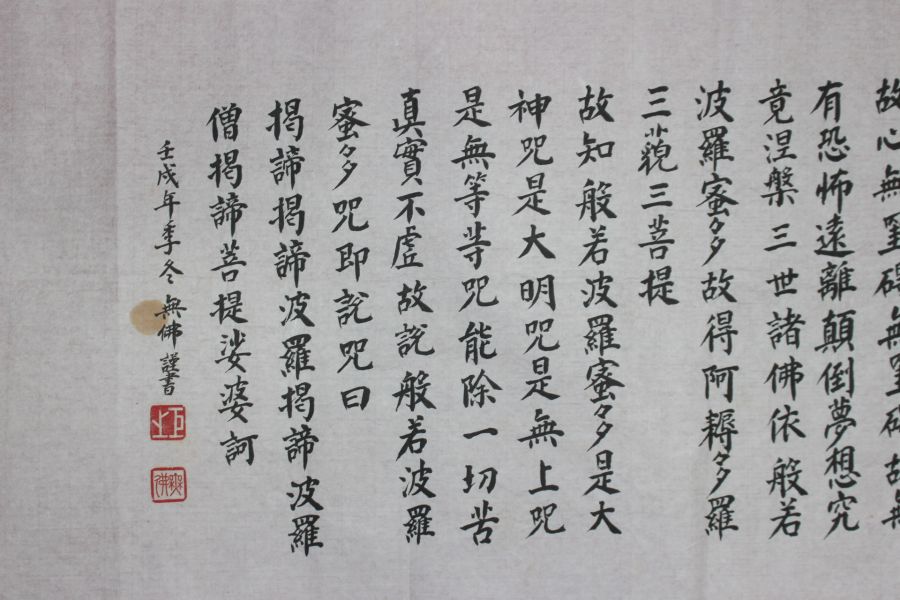 故心無罣礙無罣礙故無
有恐怖遠離顛倒夢想究
竟涅槃三世諸佛依般若
波羅蜜多故得阿耨多羅
三藐三菩提
故知般若波羅蜜多是大
神咒是大明咒是無上咒
是無等等咒能除一切苦
真實不虛故說般若波羅
蜜多咒即說咒曰
揭諦揭諦波羅揭諦波羅
僧揭諦菩提娑婆訶
壬戌年季冬無佛謹書
無佛